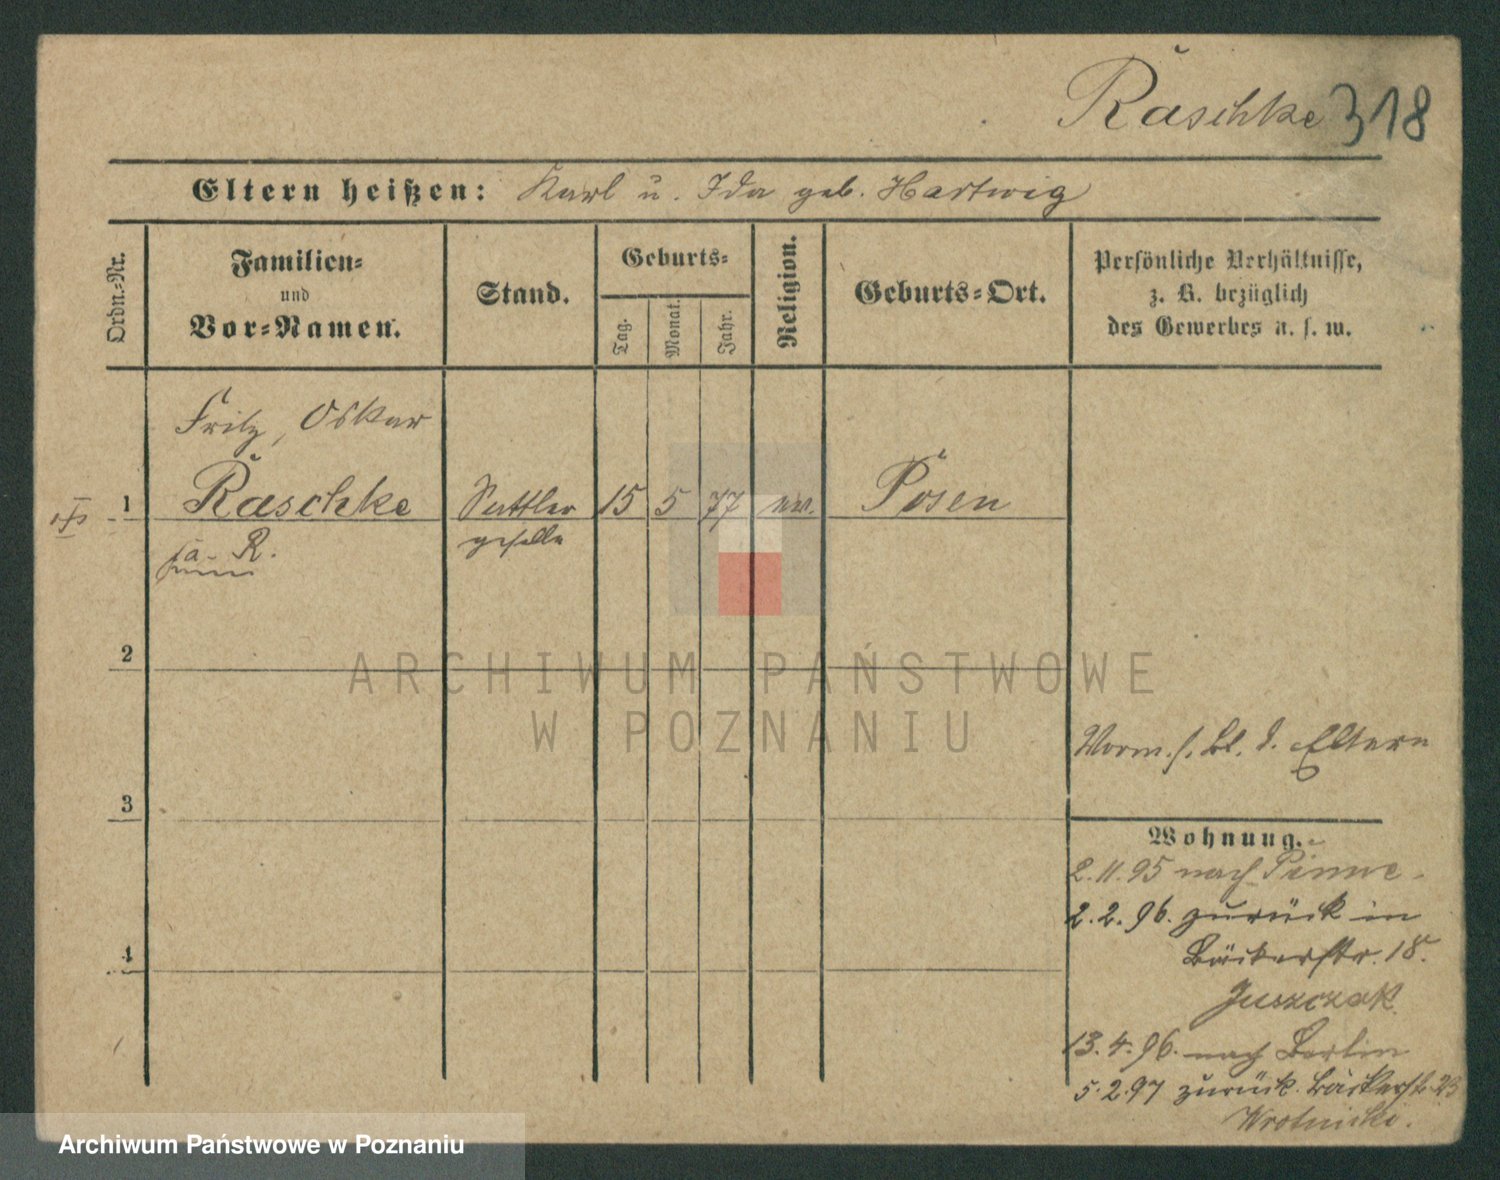 Raschke 318
Eltern heißen: Karl u. Ida geb. Hartwig
Ordn.-Nr.
Familien-
und
Vor-Namen.
Stand.
Geburts-
Tag.
Monat.
Jahr.
Religion.
Geburts-Ort.
Persönliche Verhältnisse,
z. B. bezüglich
des Gewerbes u. s. w.
Fritz, Oskar
1 Raschke Sattler 15 5 77 ev. Posen
geselle
R.
2
3
4
Vorm. s. Bl. d. Eltern
Wohnung.
2.11.95 nach Pinne.
2.2.96. zurück in
Bäckerstr. 18.
Juszczak
13.4.96. nach Berlin
5.2.97 zurück. Bäckerstr. 23
Wrotnicki.
ARCHIWUM PAŃSTWOWE
W POZNANIU
Archiwum Państwowe w Poznaniu